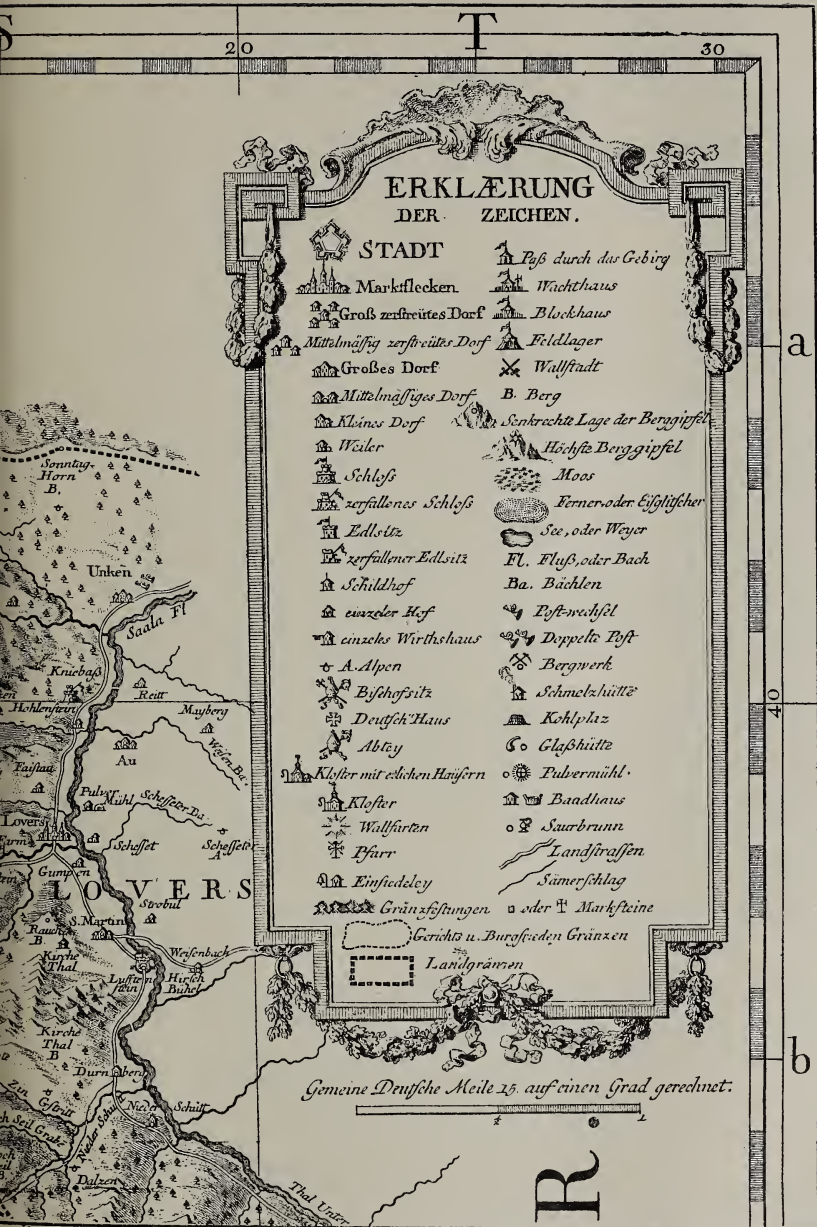 S
T
20
30
ERKLÆRUNG
DER ZEICHEN.
STADT
Marktflecken
Groß zerstreütes Dorf
Mittelmässig zerstreütes Dorf
Großes Dorf
Mittelmässiges Dorf
Kleines Dorf
Weiler
Schloss
zerfallenes Schloss
Edlsitz
zerfallener Edlsitz
Schildhof
einzeler Hof
einzeles Wirthshaus
A. Alpen
Bischofsitz
Deutsch Haus
Abtey
Kloster mit etlichen Haüsern
Kloster
Wallfarten
Pfarr
Einsiedeley
Gränzfestungen
Paß durch das Gebirg
Wachthaus
Blockhaus
Feldlager
Wallstadt
B. Berg
Senkrechte Lage der Berggipfel
Höchste Berggipfel
Moos
Ferner oder Eisglitscher
See, oder Weyer
Fl. Fluß, oder Bach
Ba. Bächlen
Post-wechsel
Doppelte Post
Bergwerk
Schmelzhütte
Kohlplaz
Glaßhütte
Pulvermühl
Baadhaus
Saurbrunn
Landstrassen
Sämerschlag
oder Marksteine
Gerichts u. Burgfrieden Gränzen
Landgränzen
Gemeine Deutsche Meile 15. auf einen Grad gerechnet.
a
40
b
R
Sonntag-
Horn
B.
Unken
Saala Fl
Kniebaß
Hohlenstein
Reitt
Mayberg
Weisen Ba.
Au
Faistau
Pulver
Mühl
Scheffeter Ba.
Lovers
Scheffet
Scheffeter
A
Gumpen
LOVERS
Strobul
S. Martin
Rauch
B.
Kirche
Thal
Weisenbach
Lufften
stein
Hirsch
Bühel
Kirche
Thal
B
Durnberg
Zin
Gstritt
Seil Grab.
Nieder Schütt
Nieder
Schütt
Dalzen
Thal Unter